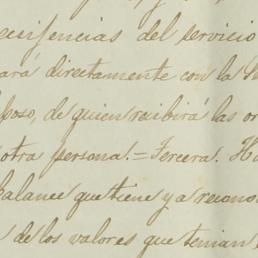 exijencias del servicio
ará directamente con la
poso, de quien recibirá las or
otra persona.=Tercera. H
Balance que tiene ya recono
de los valores que tenian